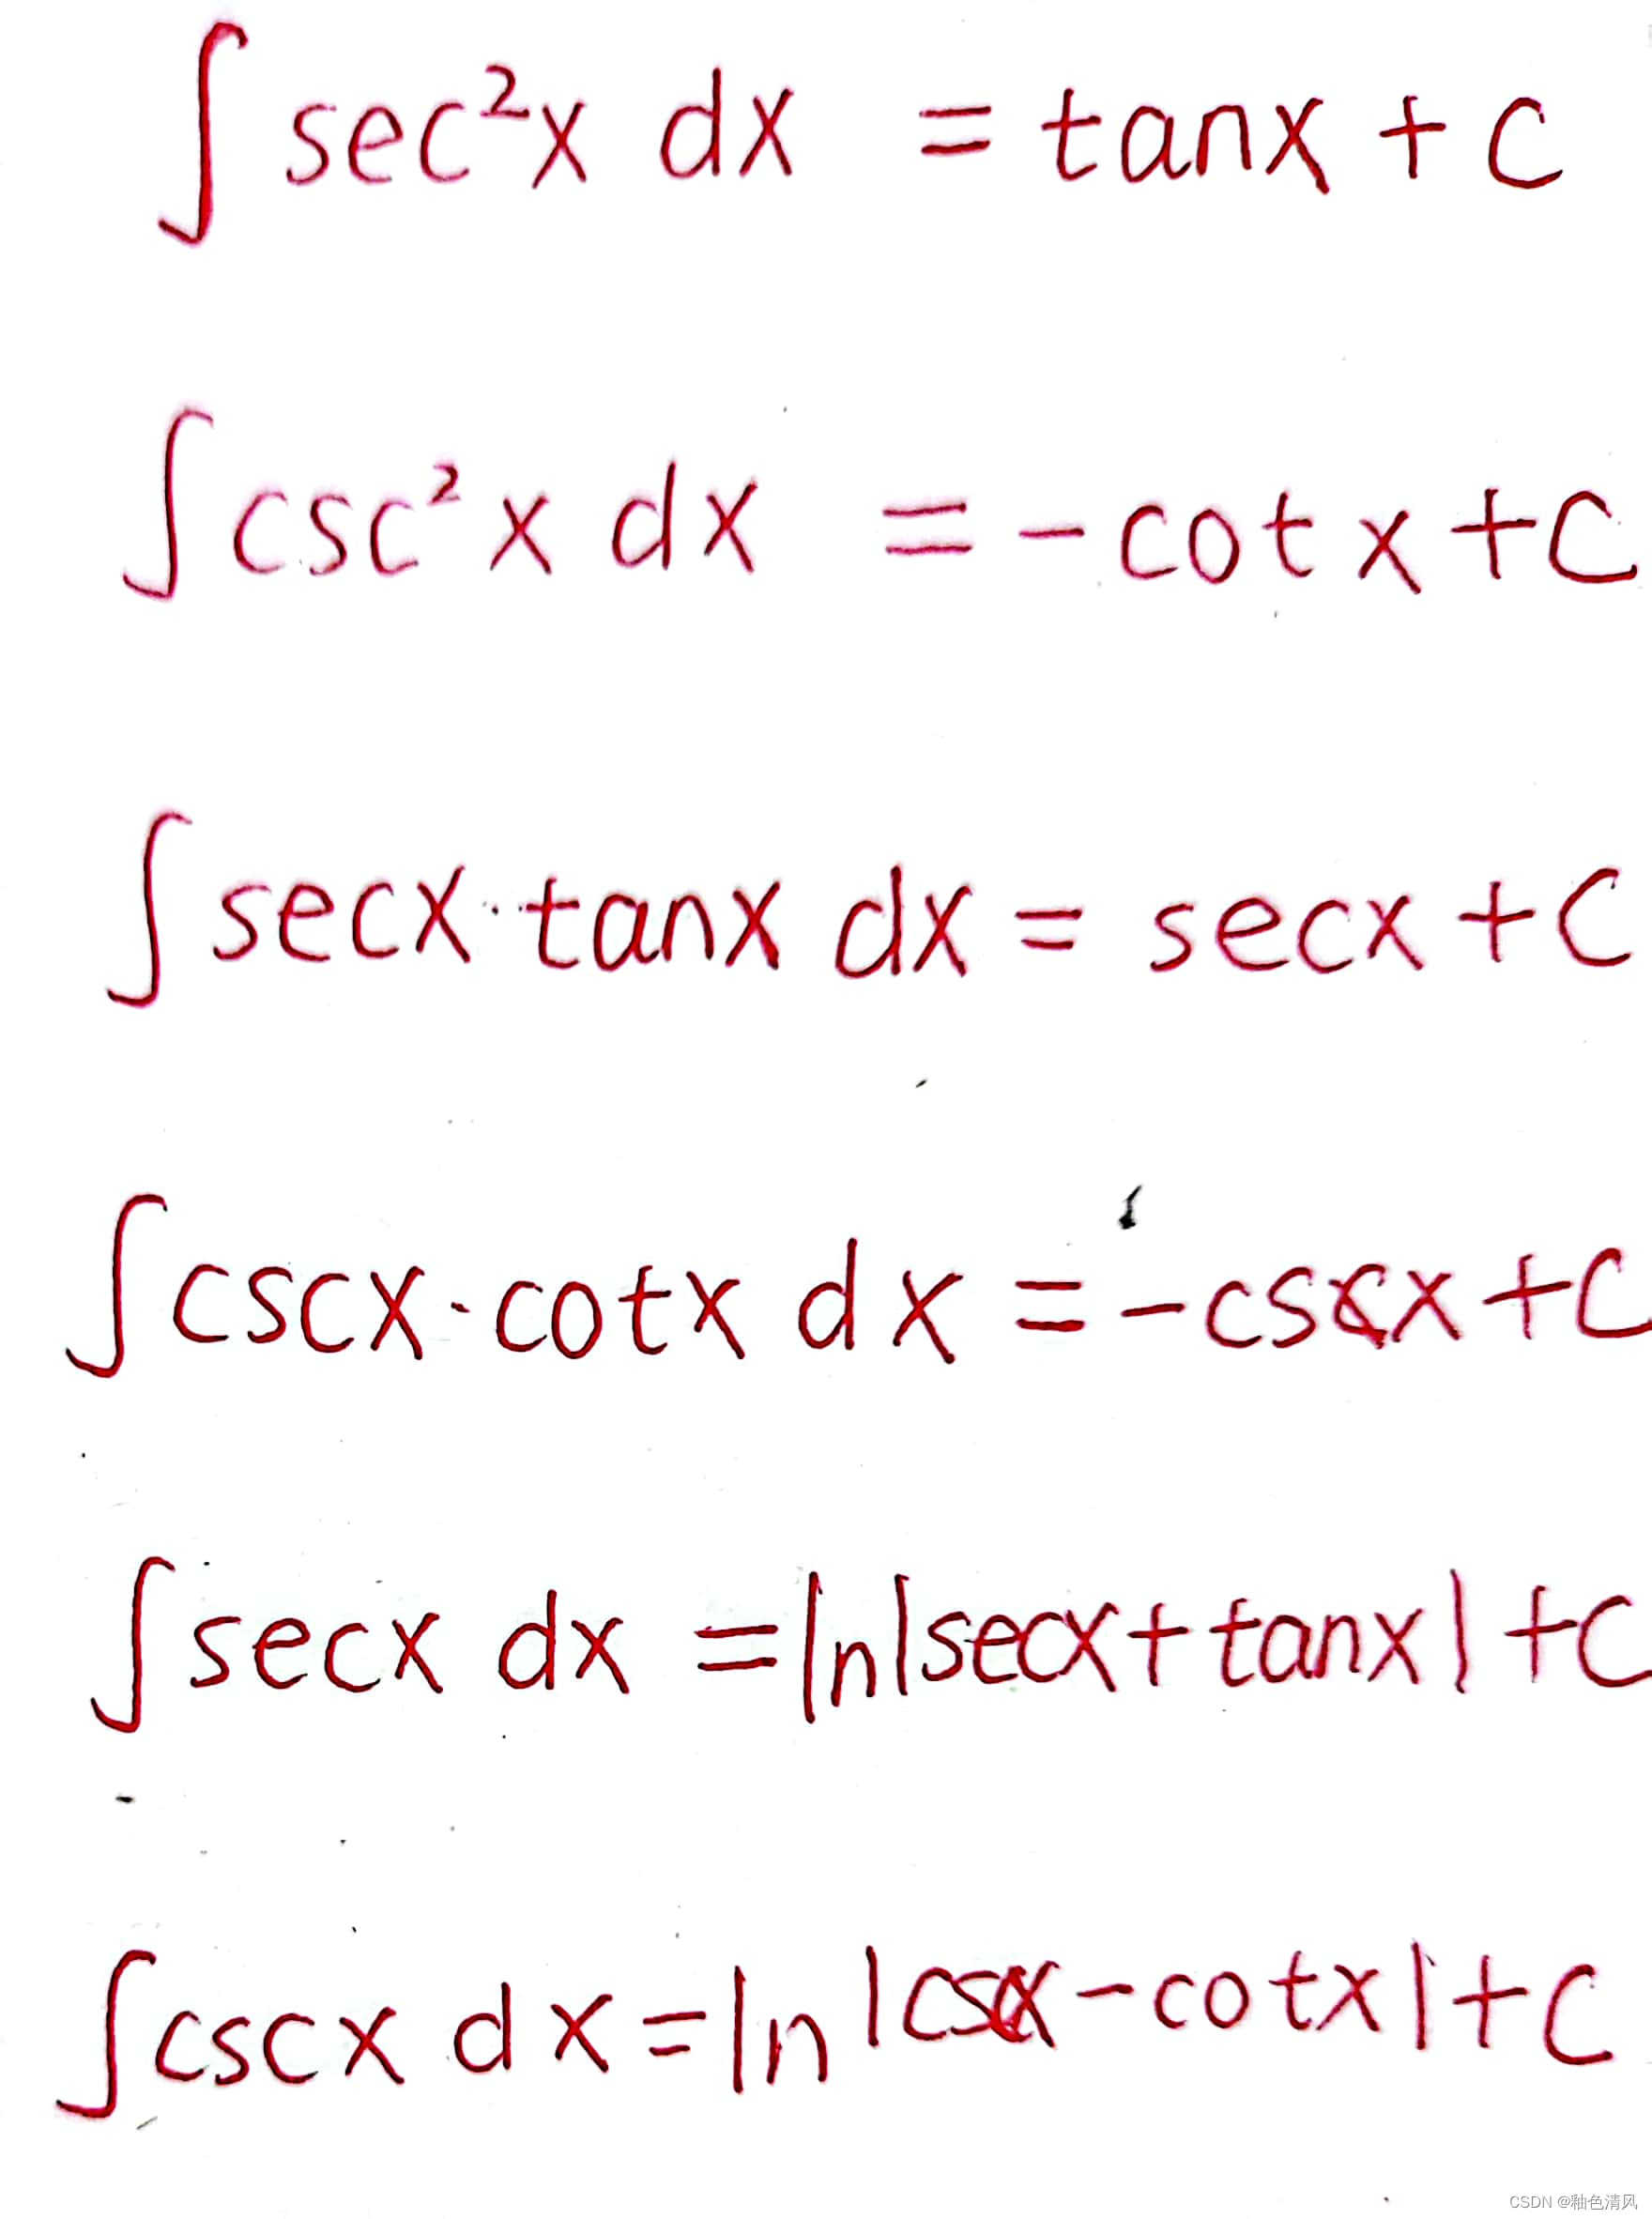 ∫ sec²x dx = tanx + C
∫ csc²x dx = -cotx + C
∫ secx·tanx dx = secx + C
∫ cscx·cotx dx = -cscx + C
∫ secx dx = ln|secx + tanx| + C
∫ cscx dx = ln|cscx - cotx| + C
CSDN @釉色清风